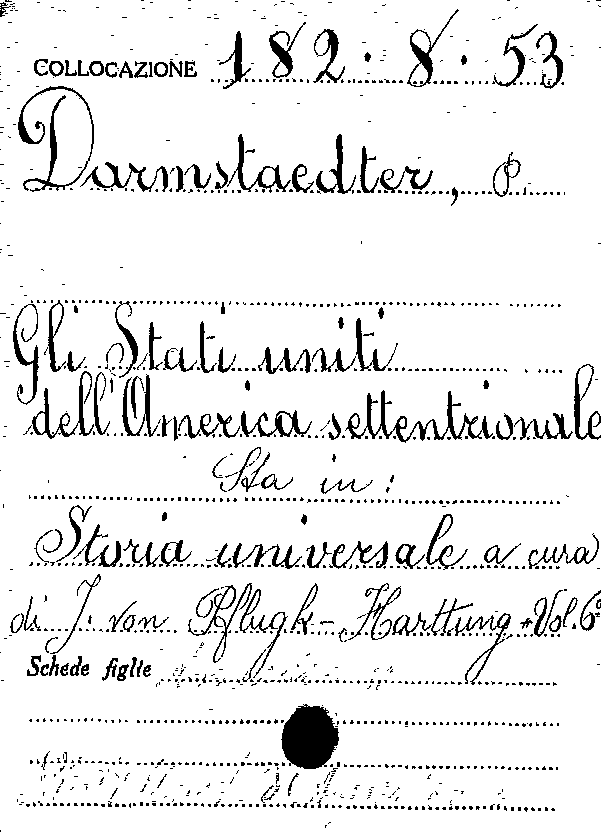 COLLOCAZIONE 182.8.53
Darmstaedter, P.
Gli Stati uniti
dell'America settentrionale
Sta in:
Storia universale a cura
di J. von Pflugk-Harttung. Vol. 6°
Schede figlie